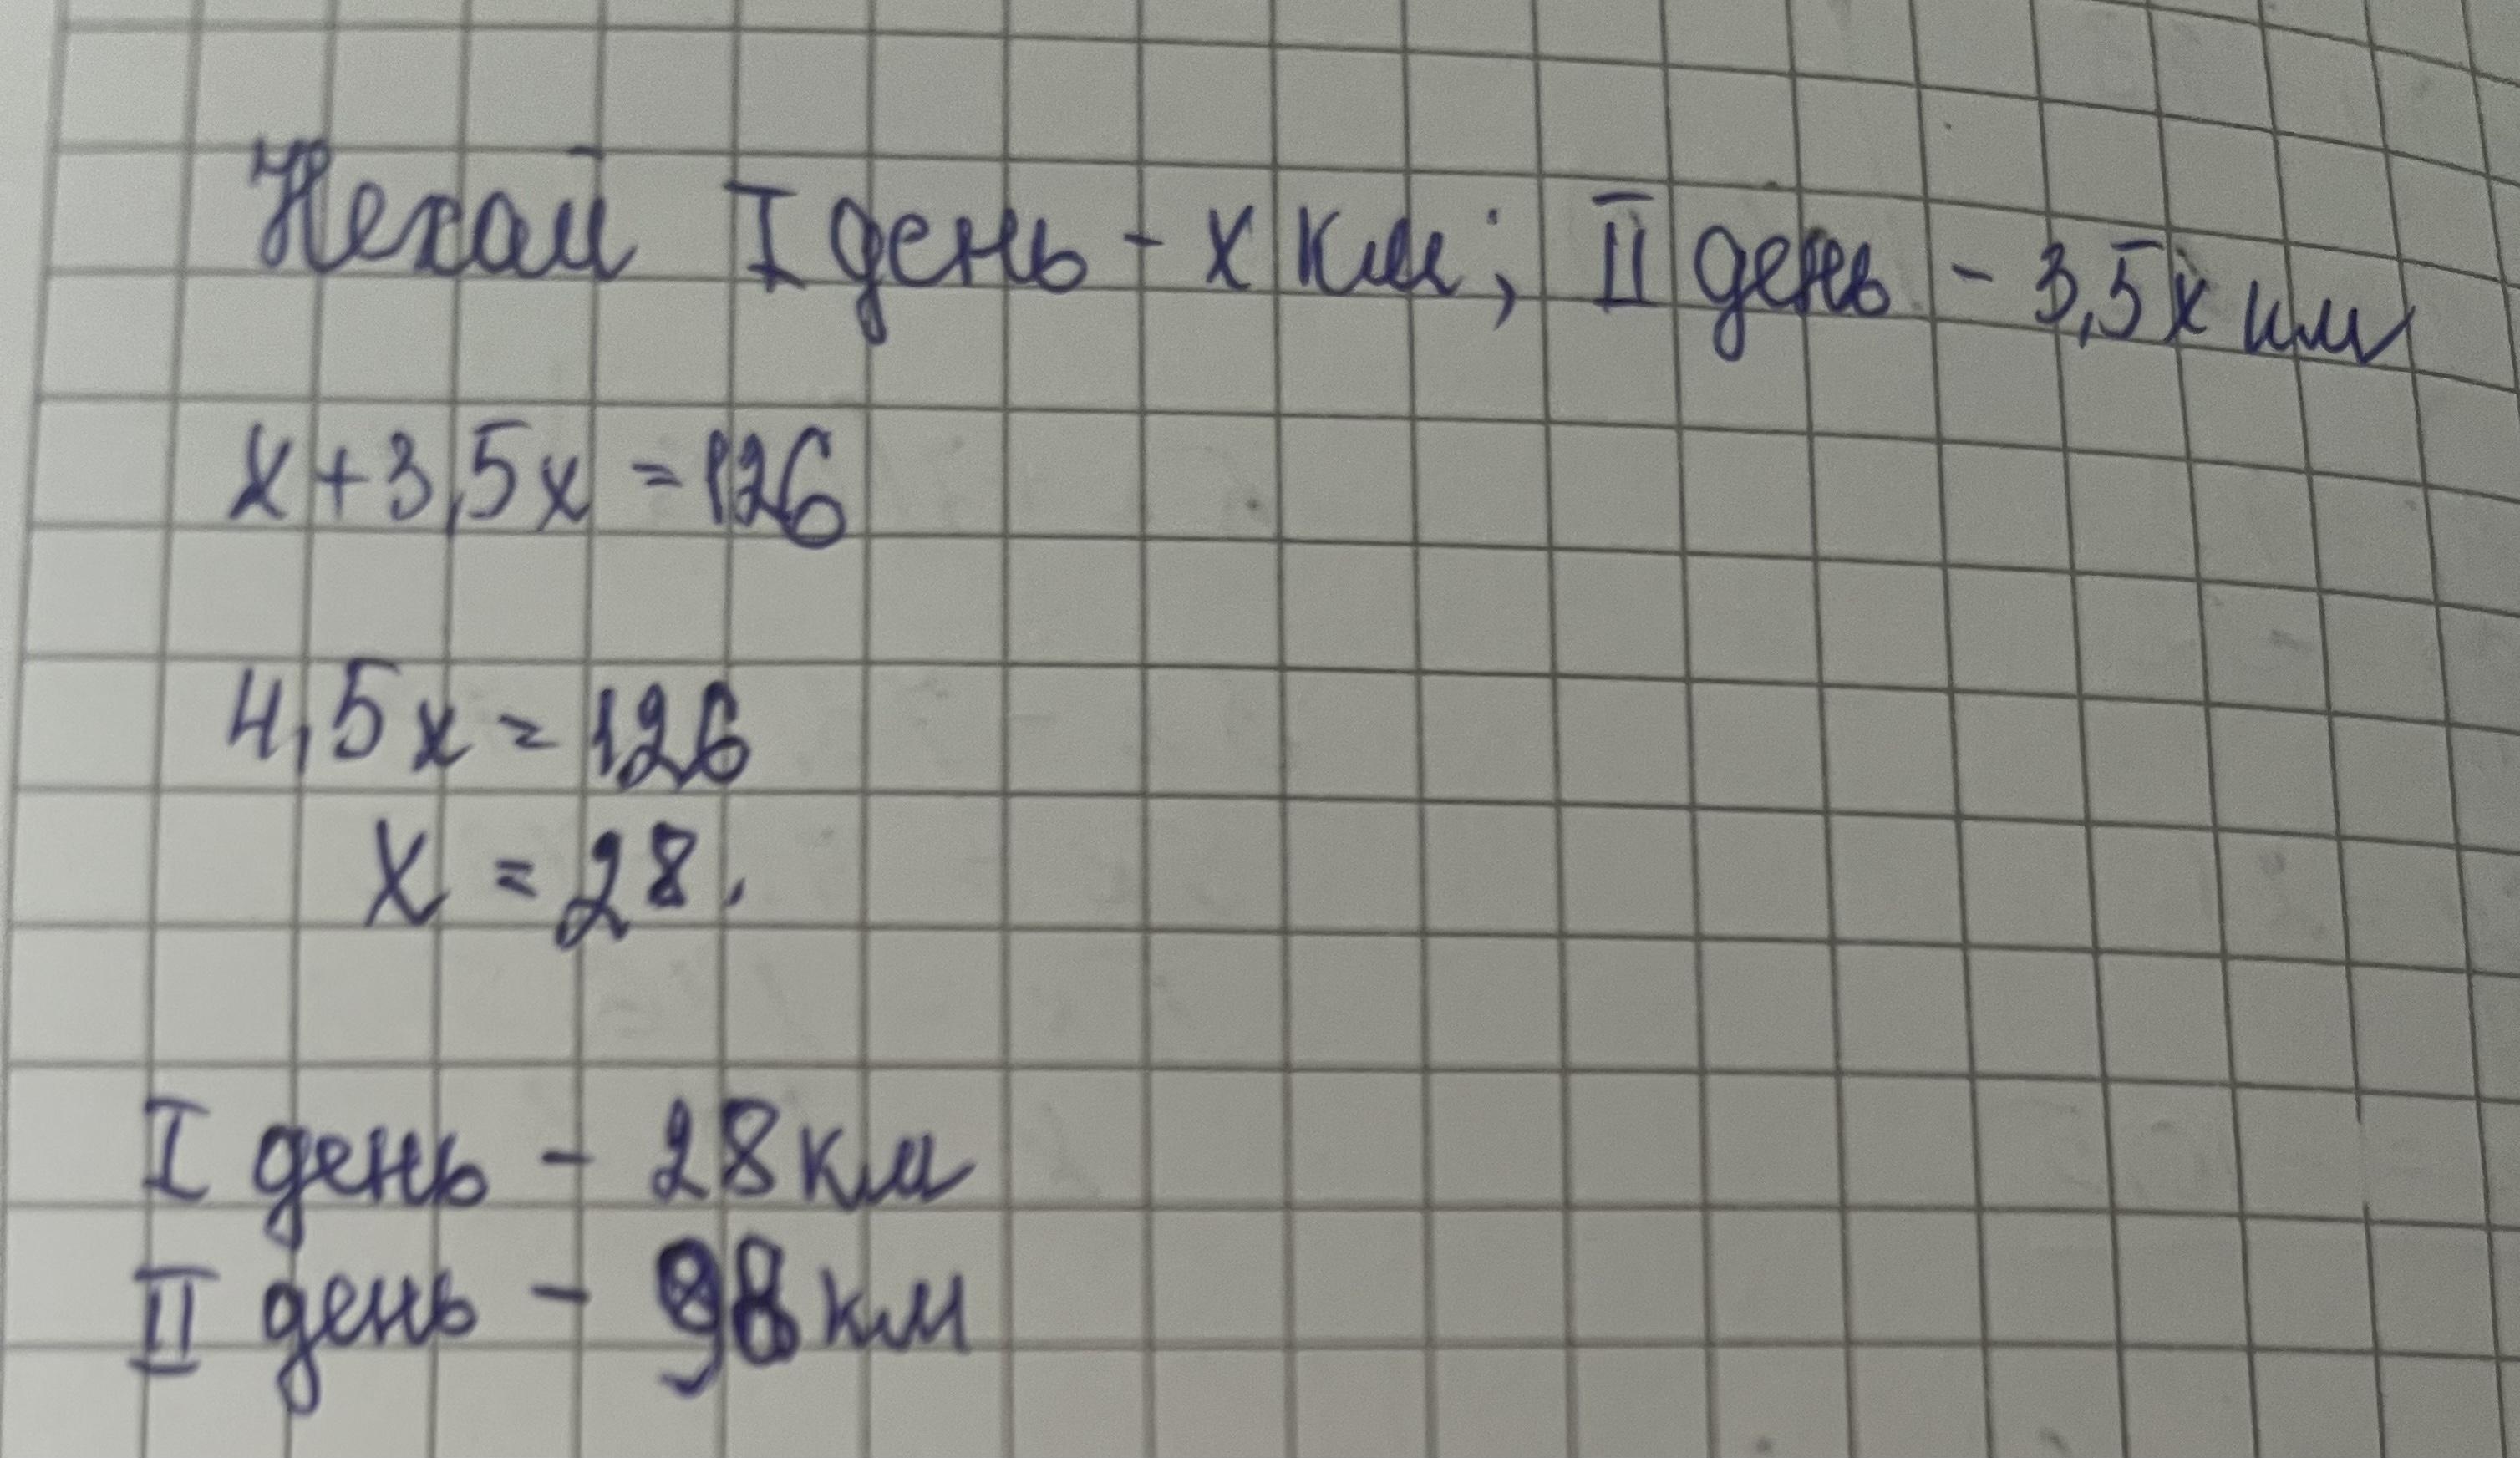 Нехай I день - x км; II день - 3,5x км
x + 3,5x = 126
4,5x = 126
x = 28.
I день - 28 км
II день - 98 км